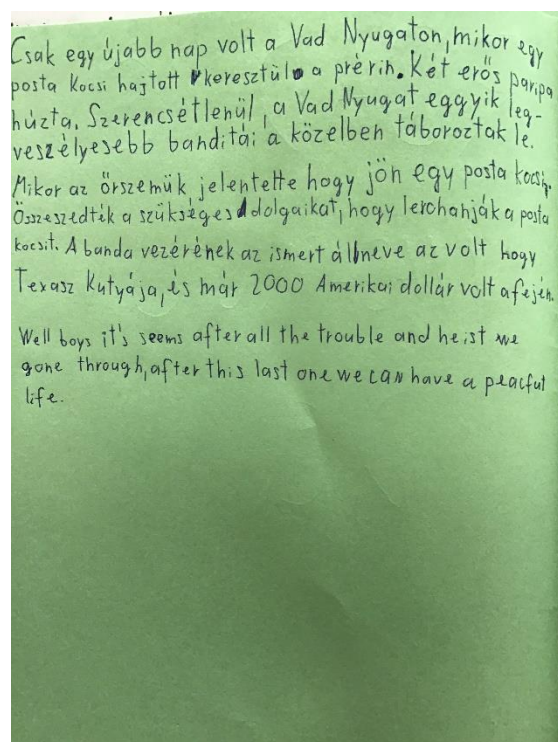 Csak egy újabb nap volt a Vad Nyugaton, mikor egy
posta kocsi hajtott keresztül a prérin. Két erős paripa
húzta. Szerencsétlenül, a Vad Nyugat eggyik leg-
veszélyesebb banditái a közelben táboroztak le.
Mikor az őrszemük jelentette hogy jön egy posta kocsi.
Összeszedték a szükséges dolgaikat, hogy lerohanják a posta
kocsit. A banda vezérének az ismert álneve az volt hogy
Texasz Kutyája, és már 2000 Amerikai dollár volt a fején.
Well boys it's seems after all the trouble and heist we
gone through, after this last one we can have a peacful
life.